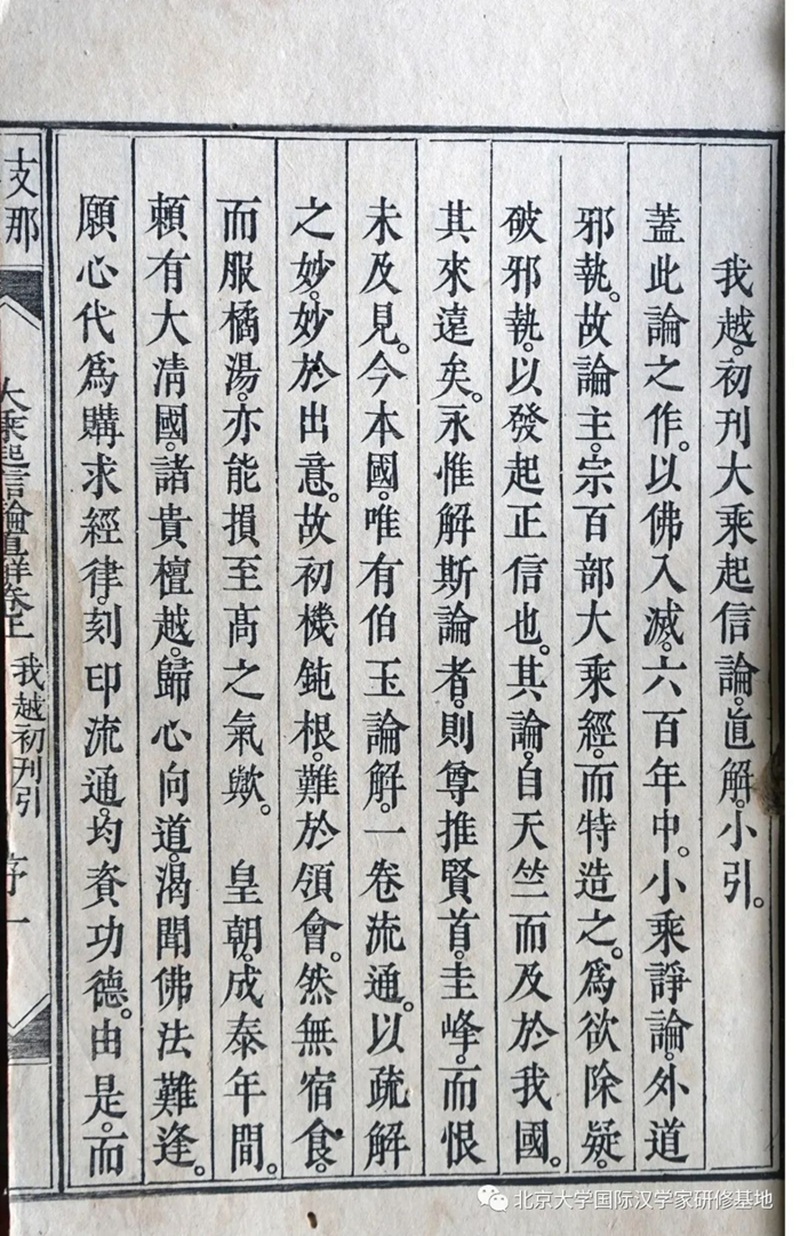 我越。初刊大乘起信論。直解。小引。
蓋此論之作。以佛入滅。六百年中。小乘諍論。外道
邪執。故論主。宗百部大乘經。而特造之。爲欲除疑。
破邪執。以發起正信也。其論。自天竺而及於我國。
其來遠矣。永惟解斯論者。則尊推賢首。圭峰。而恨
未及見。今本國。唯有伯玉論解。一卷流通。以疏解
之妙。妙於出意。故初機鈍根。難於領會。然無宿食。
而服橘湯。亦能損至高之氣歟。　皇朝。成泰年間。
賴有大凊國。諸貴檀越。歸心向道。渴聞佛法難逢。
願心代爲購求經律。刻印流通。均資功德。由是。而
支那
大乘起信論直解卷上
我越初刊引
序一
北京大学国际汉学家研修基地